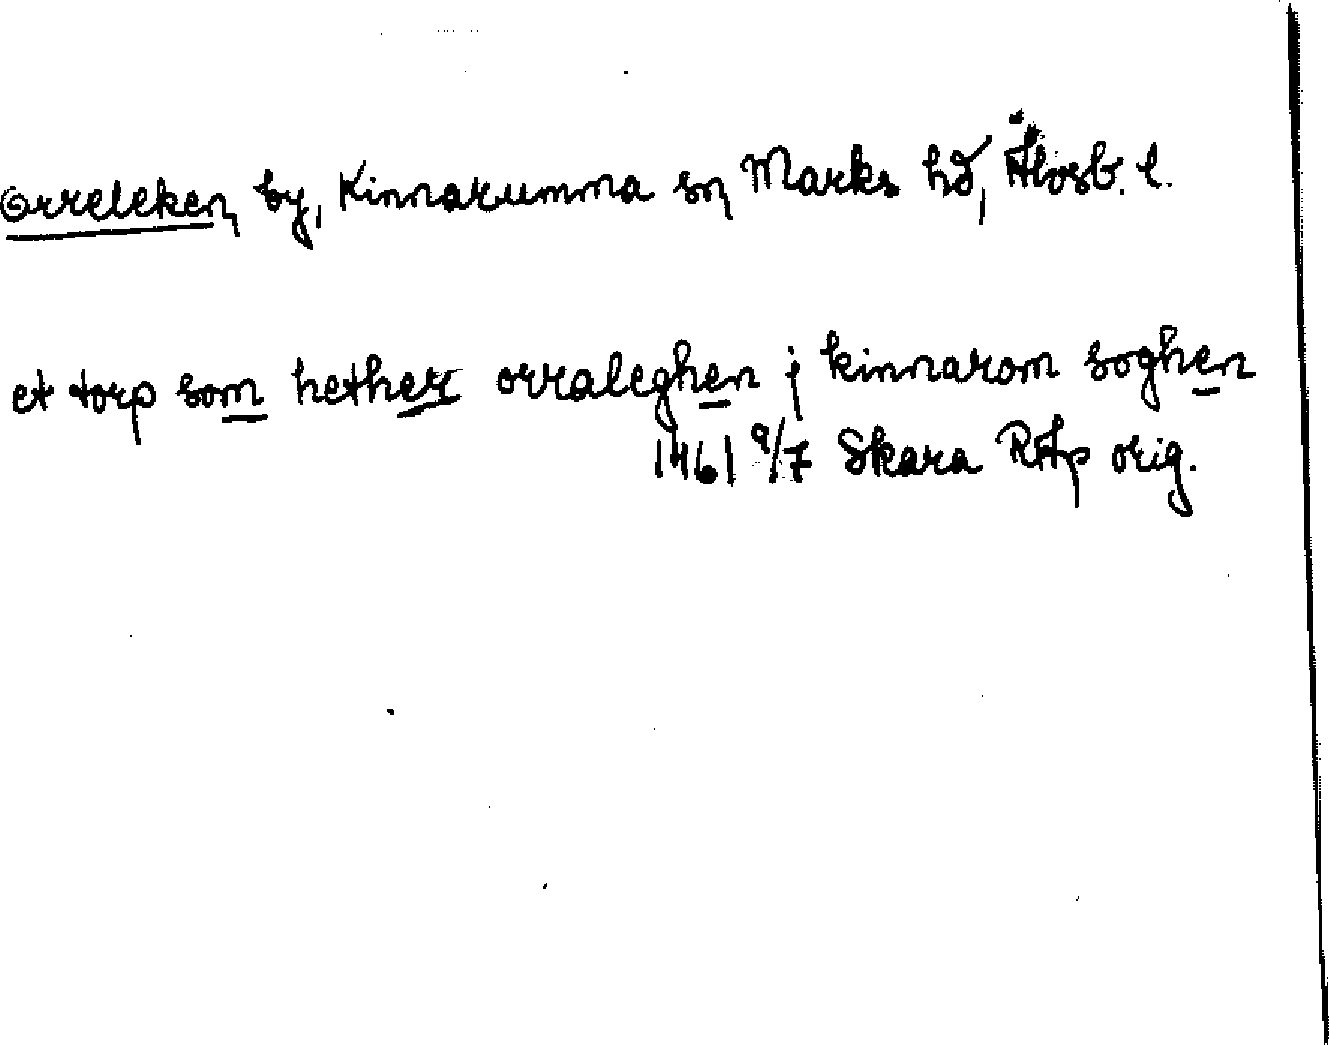 Orreleken by, Kinnarumma sn Marks hd, Älvsb. l.
et torp som hether orraleghen j kinnarom soghen
1461 9/7 Skara RAp orig.